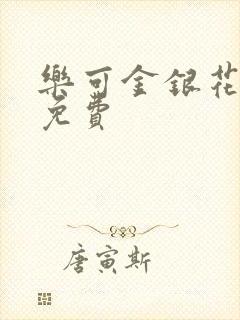 樂可金銀花
免費
唐寅斯